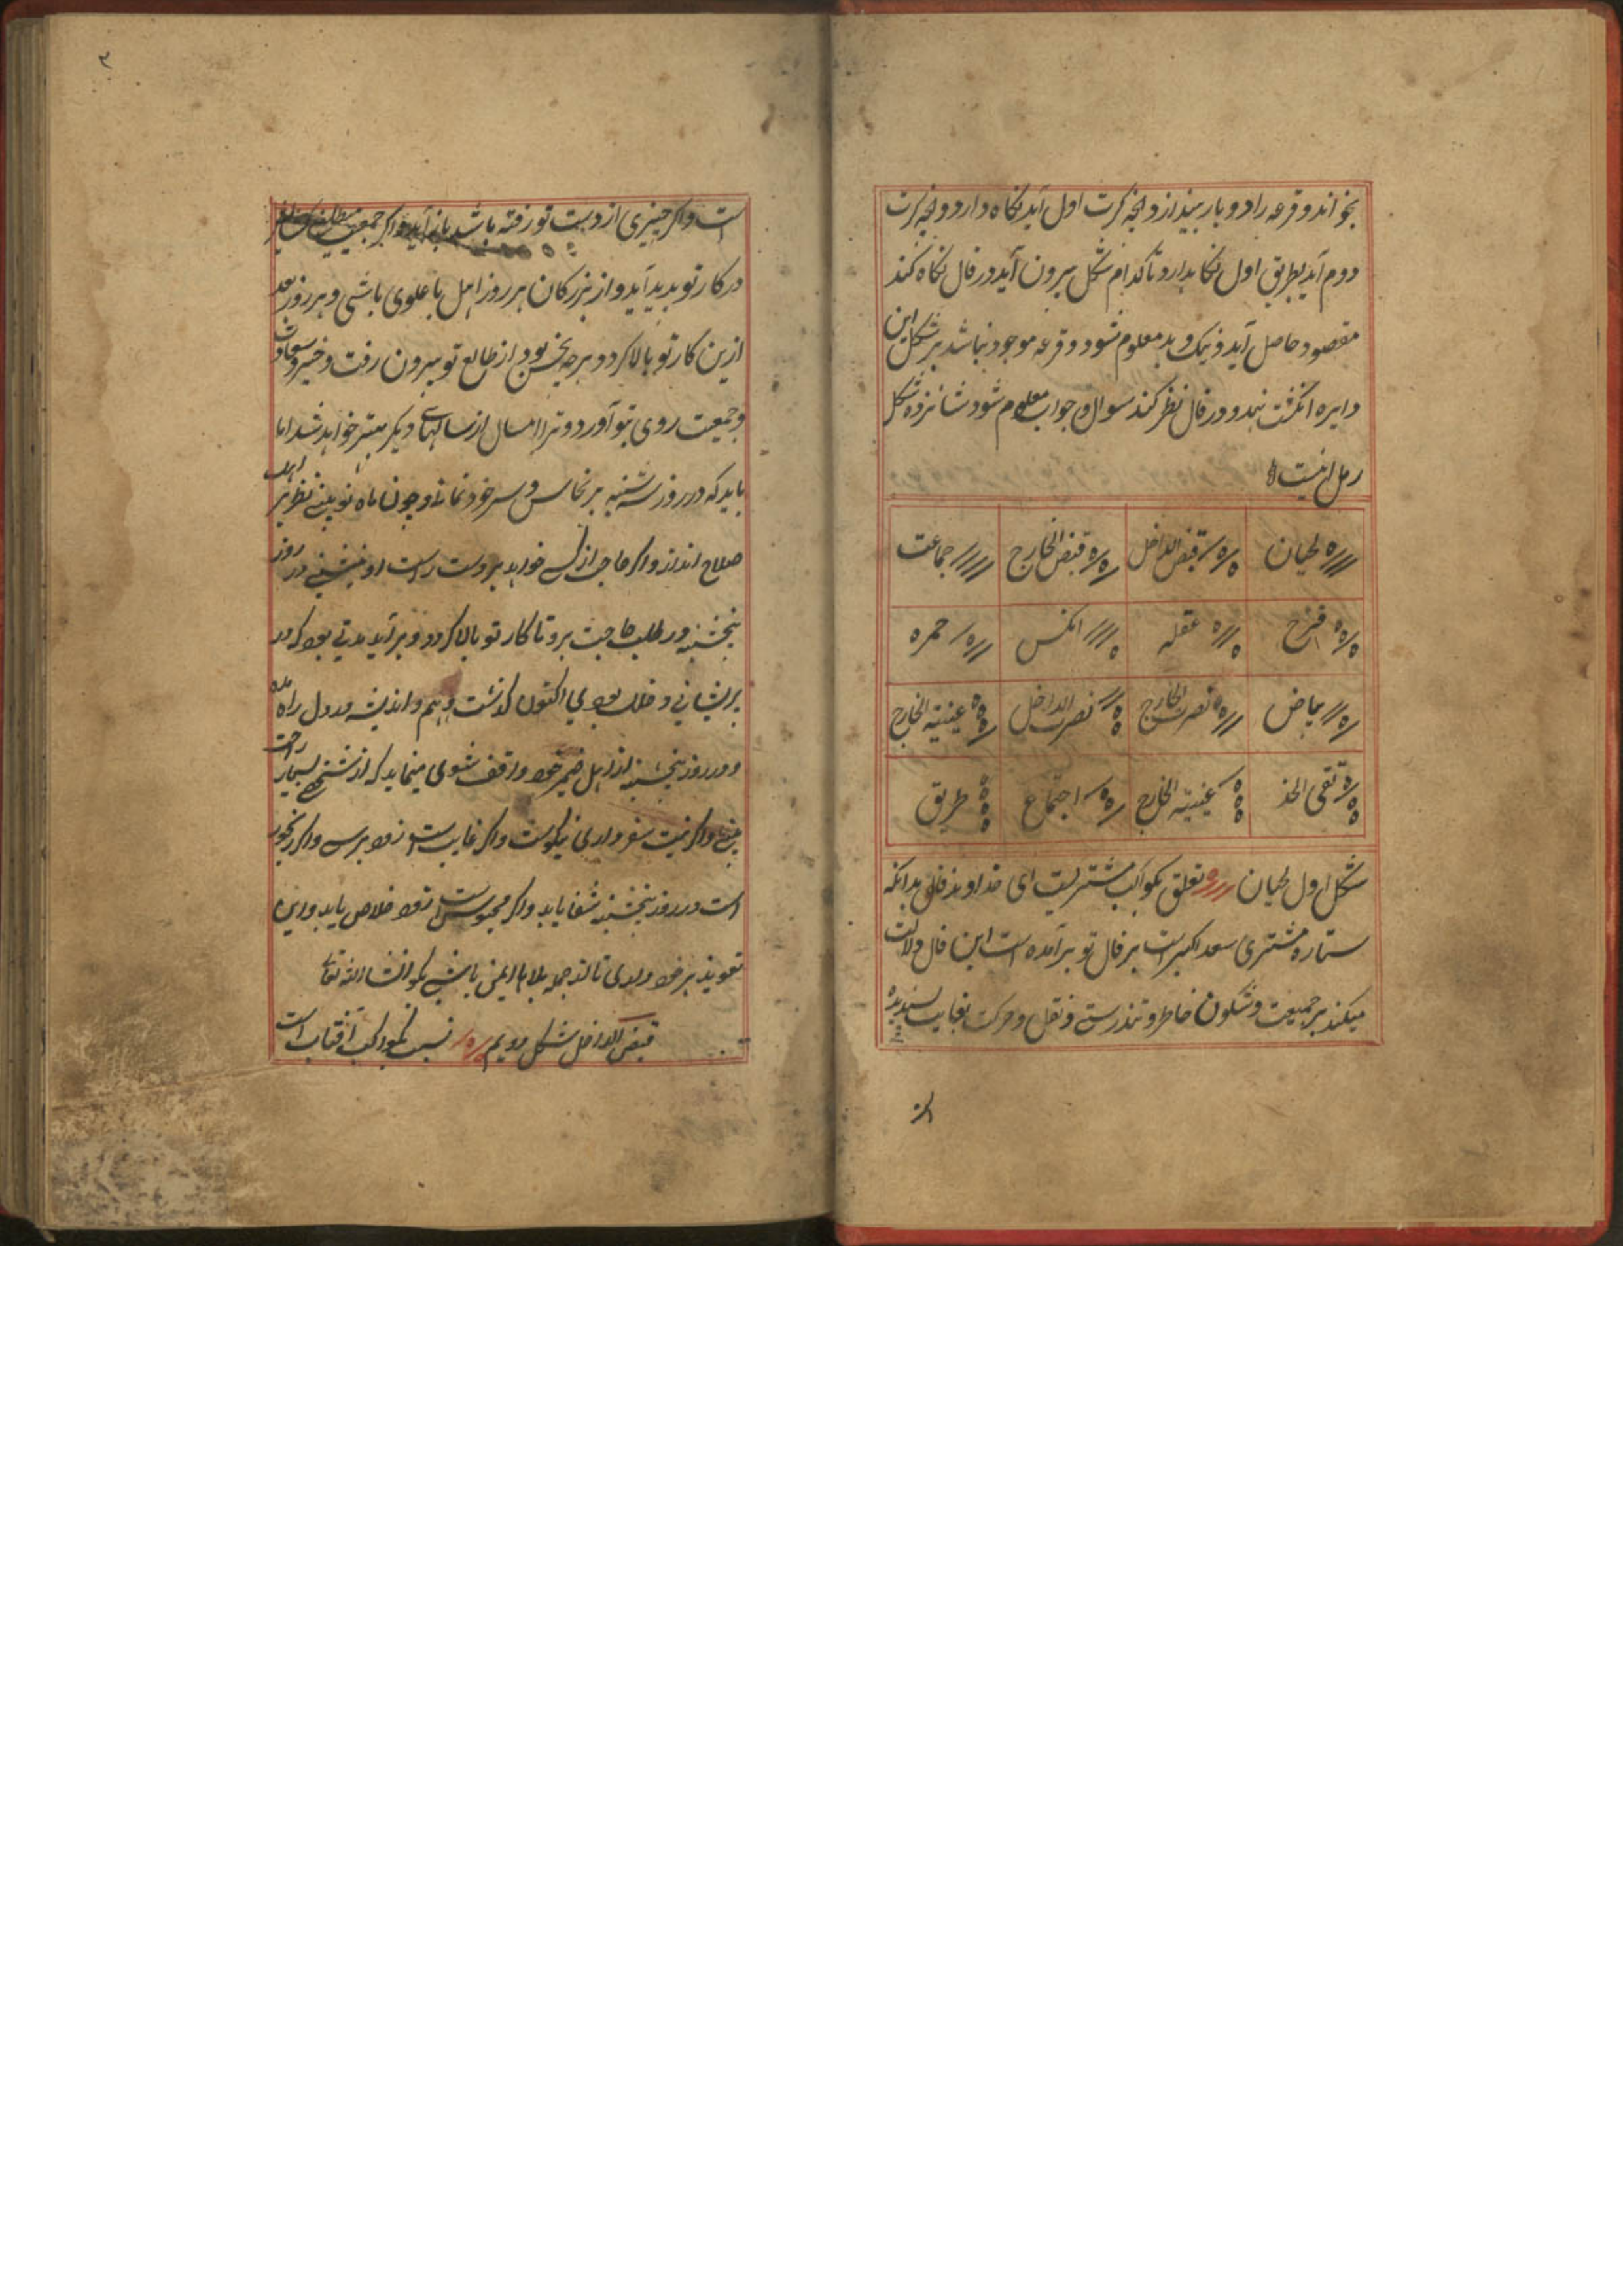 بخواند و قرعه را دو بار بیندازد و آنچه کرت اول آید نگاه دارد و آنچه کرت
دوم آید بطریق اول نگاهدارد تا کدام شکل بیرون آید در فال نگاه کند
مقصود حاصل آید و نیک و بد معلوم شود و قرعه موجود نباشد بر شکل این
دایره انکشت نهد و در فال نظر کند سوال و جواب معلوم شود شانزده شکل
رمل اینست
لحیان قبض الداخل قبض الخارج جماعت
فرح عقله انکیس حمره
بیاض نصرت الخارج نصرت الداخل عتبته الخارج
نقی الخد عتبته الخارج اجتماع طریق
شکل اول لحیان تعلق بکواکب مشتریست ای خداوند فال بدانکه
ستاره مشتری سعد اکبر است بر فال تو برآمده است این فال دلالت
میکند بر جمعیت و سکون خاطر و تندرستی و نقل و حرکت بغایت پسندیده
اکر
۲
است و اکر چیزی از دست تو رفته باشد باز آید و اکر جمعیت
در کار تو پدید آید و از بزرکان هر روز اهل با علوی باشی و هر روز بعد
ازین کار تو بالا کردد و هرچه نحس بود از طالع تو بیرون رفت و خیر و سعادت
و جمعیت روی بتو آورد و ترا امسال از سالهای دیکر بهتر خواهد شد اما
باید که در روز سه شنبه بر سر خود و چون ماه نو بینی نظر بر اهل
صلاح انداز و اکر حاجت از کسی خواهد بر دست راست او بنشینی در روز
پنجشنبه در طلب حاجت برو تا کار تو بالا کردد و برآید مدتی بود که در
پریشانی و فلک بودی اکنون کذشت وهم و اندیشه در دل راه مده
و در روز پنجشنبه از اهل ضمیر خود واقف شوی مینماید که از بسیار راحت
بینی و اکر نیت سفر داری نیکوست و اکر غایب است زود برسد و اکر رنجور
است در روز پنجشنبه شفا یابد و اکر محبوس است زود خلاص یابد و این
تعویذ بر خود داری تا از جمله بلاها ایمن باشی بکو انشاءالله تعالی
قبض الداخل شکل دویم نسبت بکواکب آفتاب است